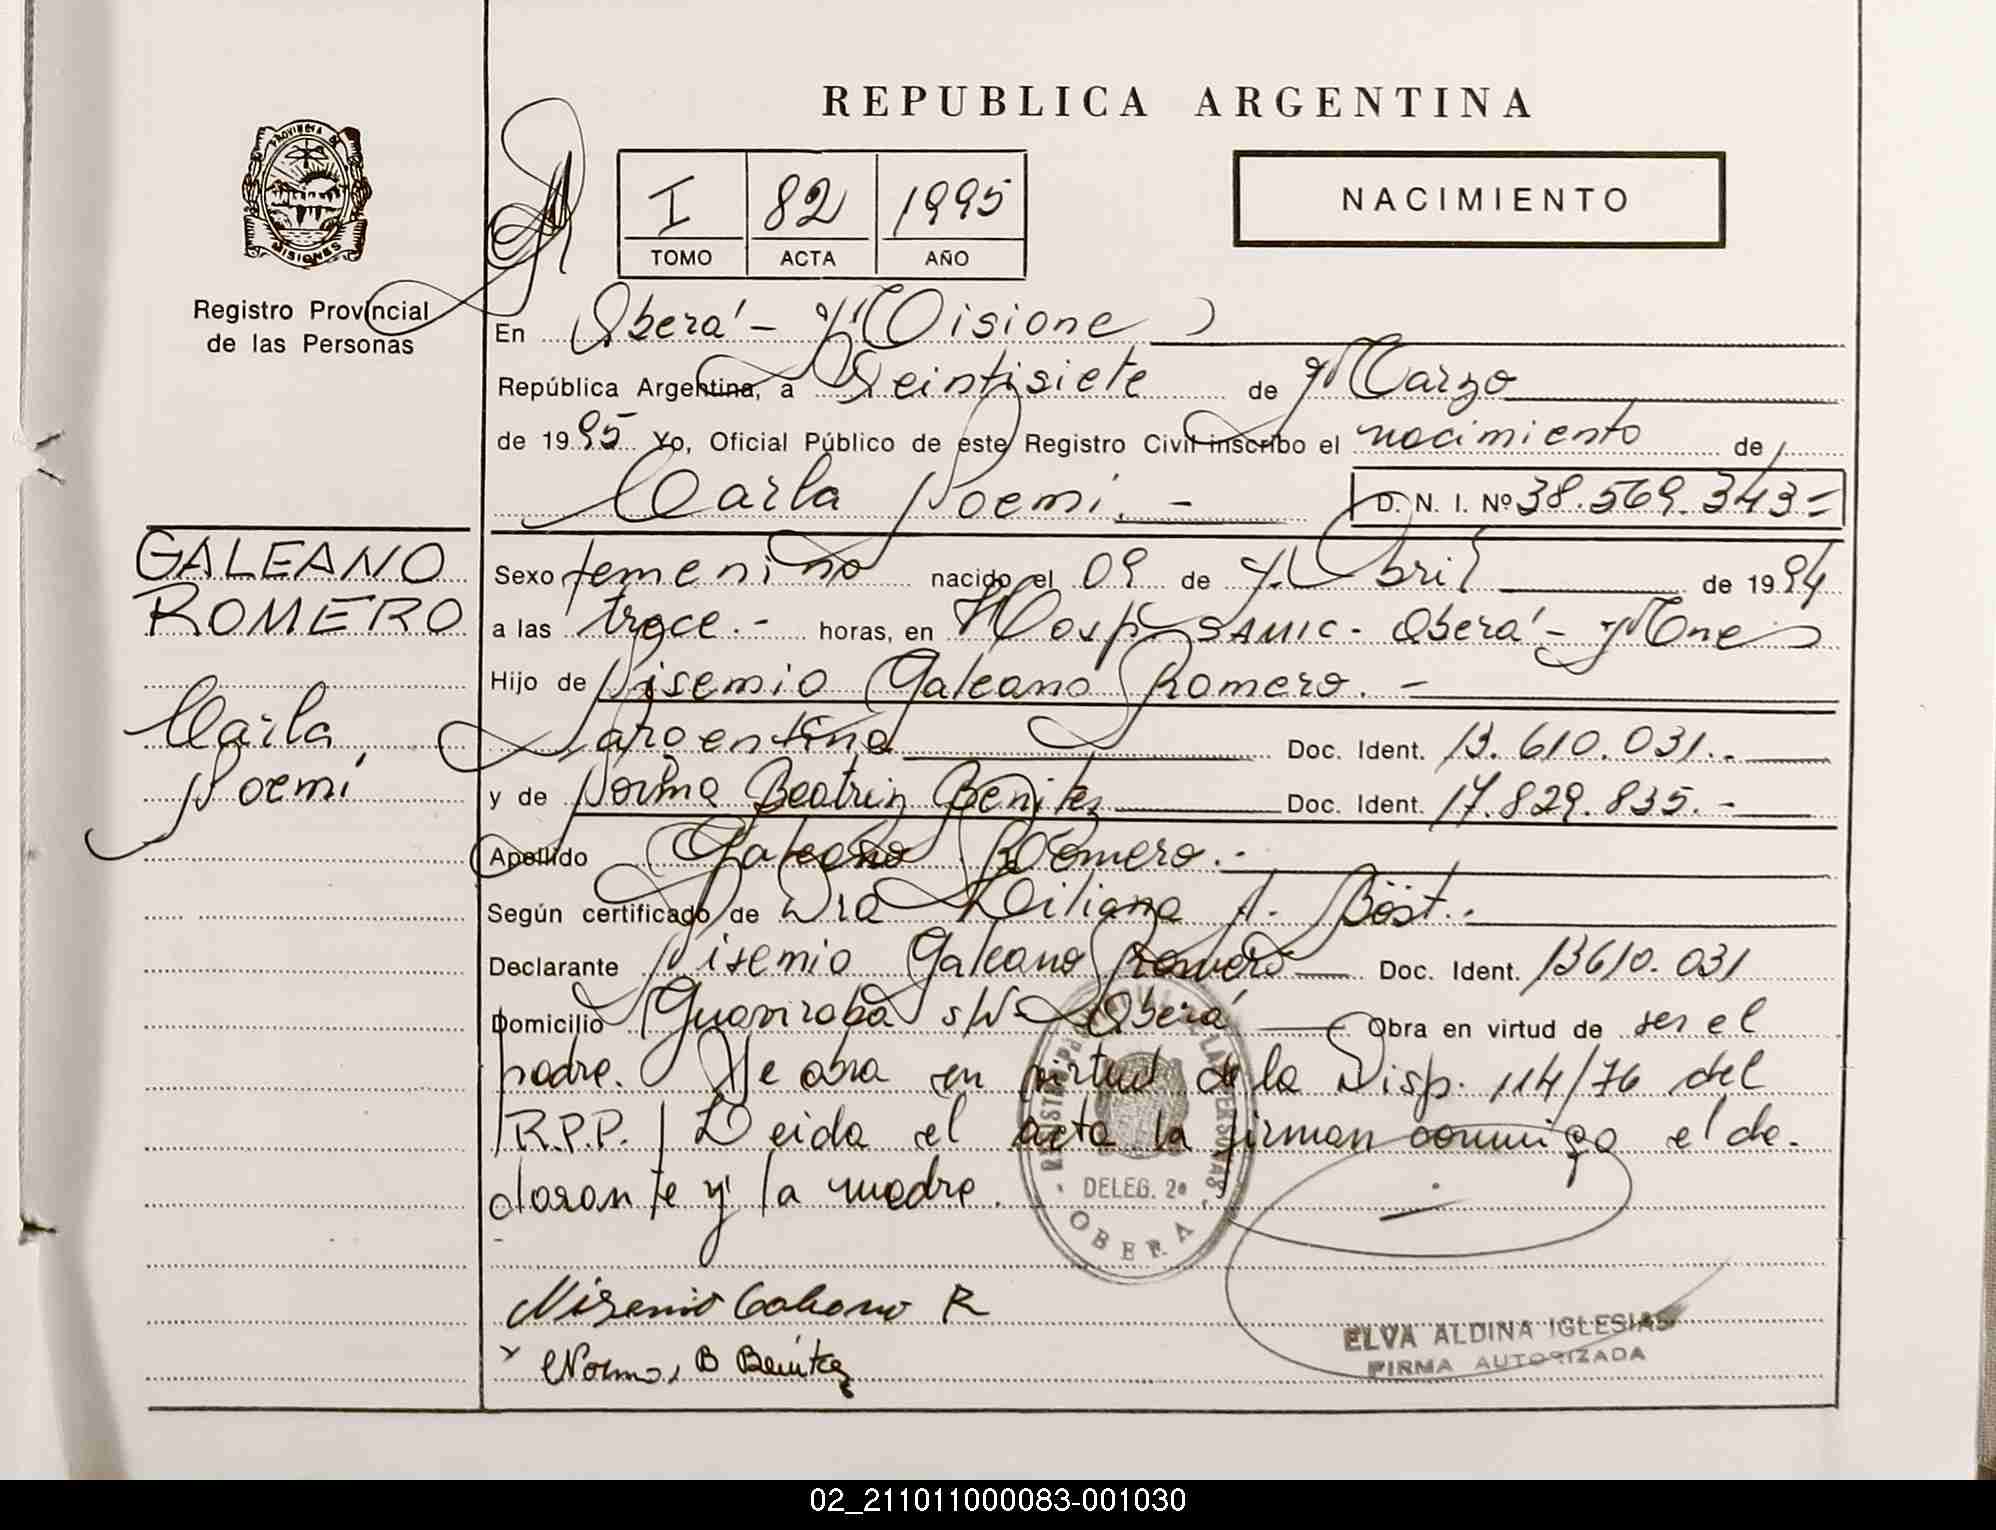 REPUBLICA ARGENTINA
PROVINCIA DE MISIONES
Registro Provincial
de las Personas
I 82 1995
TOMO ACTA AÑO
NACIMIENTO
En Oberá - Misiones
República Argentina, a Veintisiete de Marzo
de 1995 Yo, Oficial Público de este Registro Civil inscribo el nacimiento de
Carla Noemi. - D. N. I. Nº 38.569.343-
GALEANO
ROMERO
Carla
Noemí
Sexo femenino nacido el 09 de Abril de 1994
a las trece.- horas, en Hosp. SAMIC - Oberá - Mnes
Hijo de Nisemio Galeano Romero. -
argentina Doc. Ident. 13.610.031.-
y de Norma Beatriz Benitez Doc. Ident. 17.829.835.-
Apellido Galeano Romero.-
Según certificado de Dra Liliana A. Böst.-
Declarante Nisemio Galeano Romero Doc. Ident. 13610.031
Domicilio Guaviraba s/Nº Oberá Obra en virtud de ser el
padre. Se obra en virtud de la Disp. 114/76 del
R.P.P. Leida el acta la firman conmigo el de-
clarante y la madre.
DELEG. 2a
OBERA
Nisemio Galeano R
Norma B Benitez
ELVA ALDINA IGLESIAS
FIRMA AUTORIZADA
02_211011000083-001030